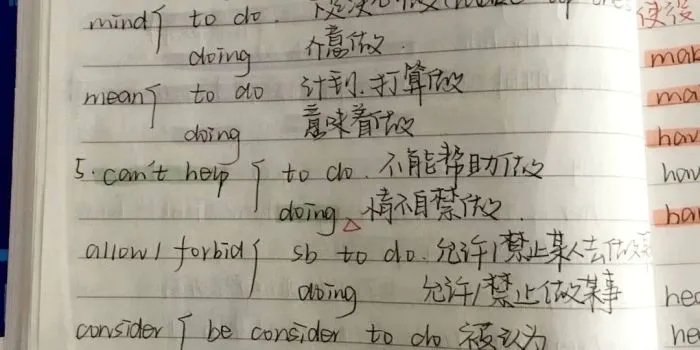 mind { to do. 下定决心做(make up one's
doing 介意做.
mean { to do 计划.打算做
doing 意味着做
5. can't help { to do. 不能帮助做
doing 情不自禁做.
allow / forbid { sb to do. 允许/禁止某人去做某事
doing 允许/禁止做某事
consider { be consider to do 被认为
使役
mak
ma
hav
hav
hav
hea
he